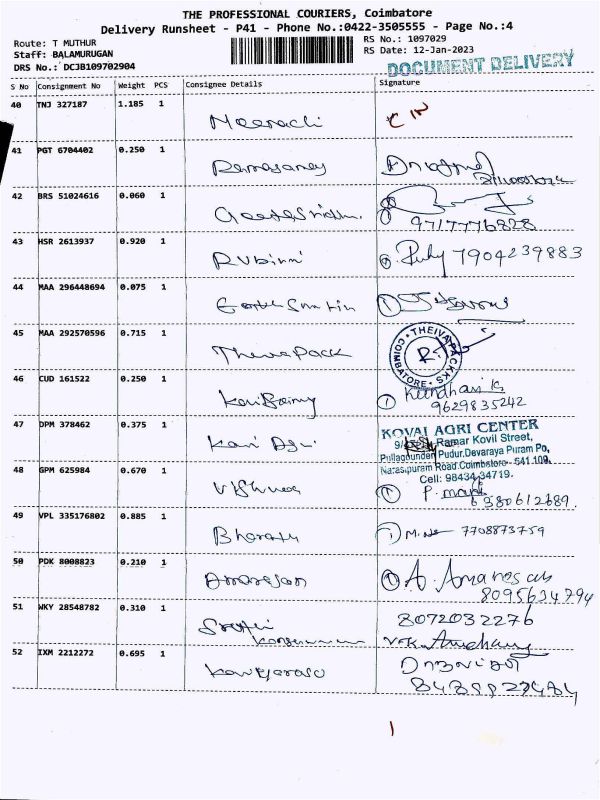 THE PROFESSIONAL COURIERS, Coimbatore
Delivery Runsheet - P41 - Phone No.:0422-3505555 - Page No.:4
Route: T MUTHUR
Staff: BALAMURUGAN
DRS No.: DCJB109702904
RS No.: 1097029
RS Date: 12-Jan-2023
DOCUMENT DELIVERY
S No Consignment No Weight PCS Consignee Details Signature
40 TNJ 327187 1.185 1 Meenachi
41 PGT 6704402 0.250 1
42 BRS 51024616 0.060 1
9717776828
43 HSR 2613937 0.920 1 Rubini Ruby 7904239883
44 MAA 296448694 0.075 1
45 MAA 292570596 0.715 1 Theiva Pack
THEIVA PACKKS COIMBATORE
46 CUD 161522 0.250 1
9629835242
47 DPM 378462 0.375 1 Kovi Agri
KOVAI AGRI CENTER
Ramar Kovil Street,
Pullagounden Pudur, Devaraya Puram Po,
Narasipuram Road. Coimbatore- 641 109.
Cell: 98434 34719.
48 GPM 625984 0.670 1 Vishnu P. mani
6380612689.
49 VPL 335176802 0.885 1 Bharath 7708873759
50 PDK 8008823 0.210 1 Amaresan A. Amaresan
8095634794
51 WKY 28548782 0.310 1 8072032276
52 IXM 2212272 0.695 1